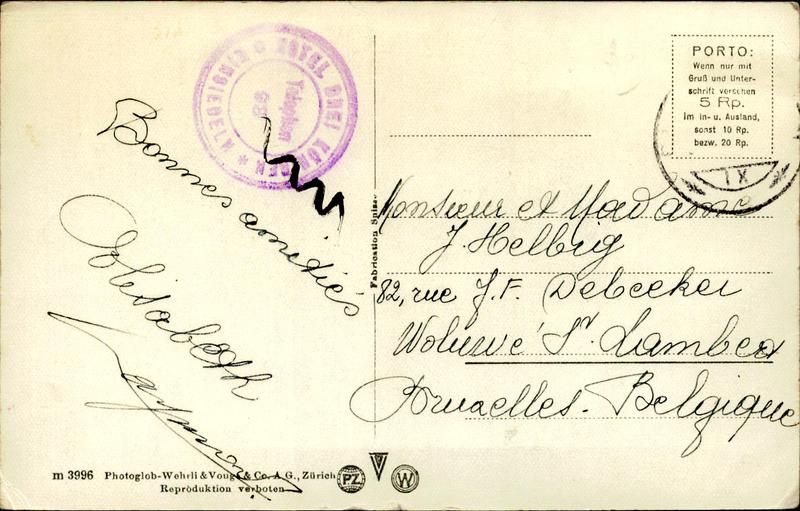 HOTEL DREI KÖNIGEN * EINSIEDELN
Telephon
98
Bonnes amitiés
Elisabeth
PORTO:
Wenn nur mit
Gruß und Unter-
schrift versehen
5 Rp.
im In- u. Ausland,
sonst 10 Rp.
bezw. 20 Rp.
IX
Fabrication Suisse
Monsieur et Madame
J. Helbig
82, rue J.F. Debecker
Woluwé St. Lambert
Bruxelles. Belgique
m 3996 Photoglob-Wehrli & Vouga & Co. A.G., Zürich
Reproduktion verboten
PZ
V
W